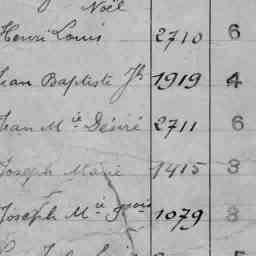 Noël
Henri Louis 2710 6
Jean Baptiste Jh 1919 4
Jean M.ie Désiré 2711 6
Joseph Marie 1415 3
Joseph M.ie Fçois 1079 3